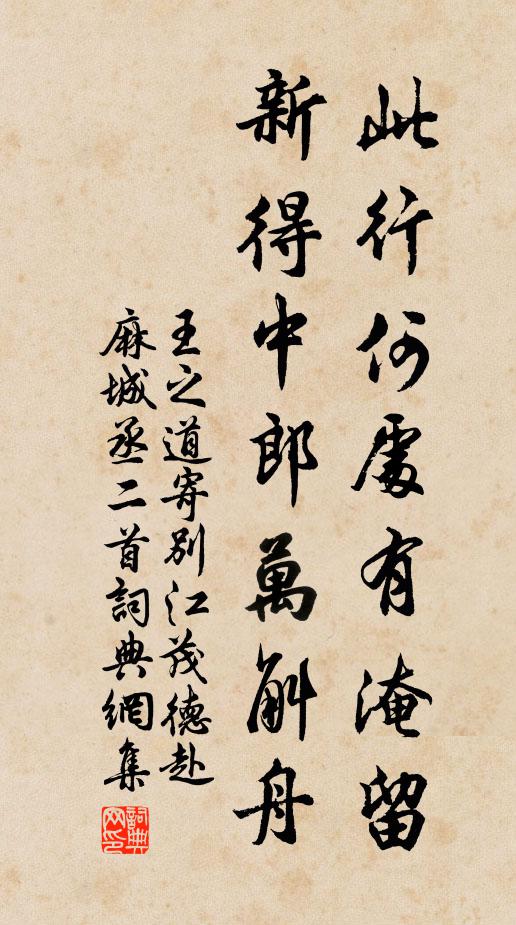 此行何處有淹留
新得中郎萬斛舟
王之道寄別江茂德赴
麻城丞二首詞典網集
詞典网印